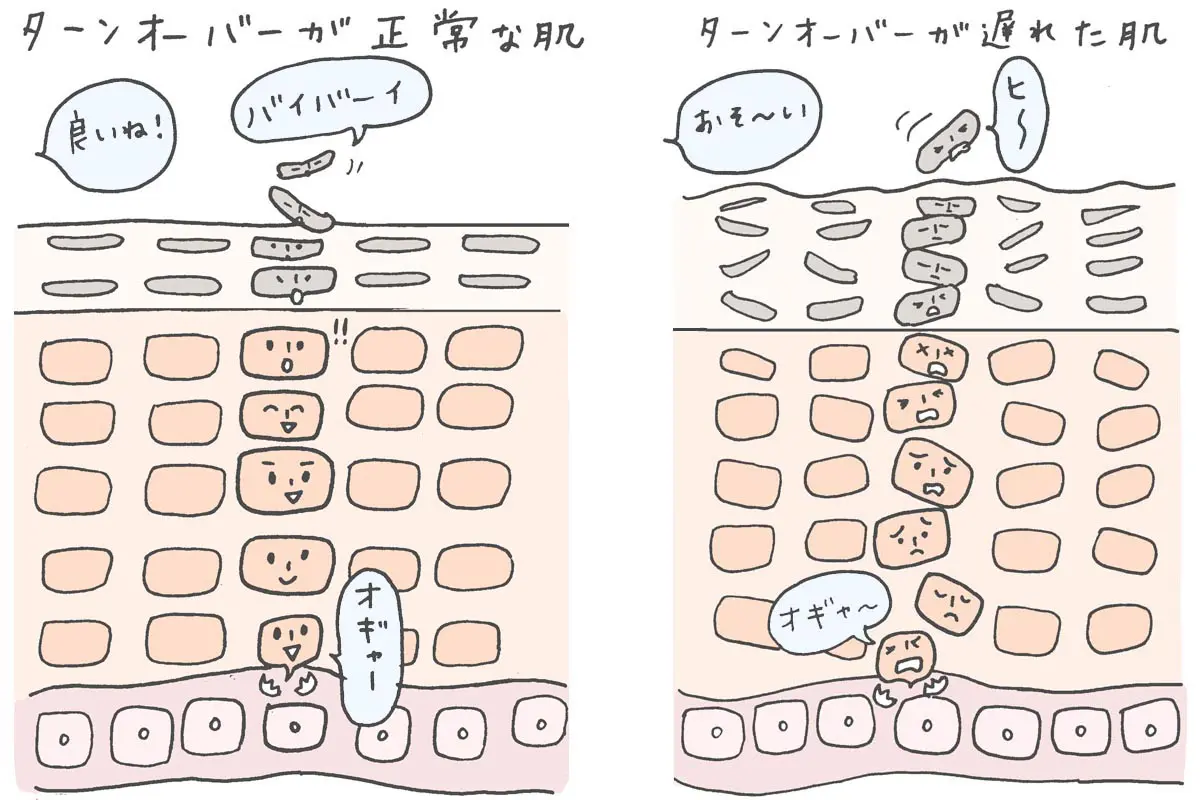 ターンオーバーが正常な肌
良いね!
バイバーイ
!!
オギャー
ターンオーバーが遅れた肌
おそ〜い
ヒ〜
オギャ〜